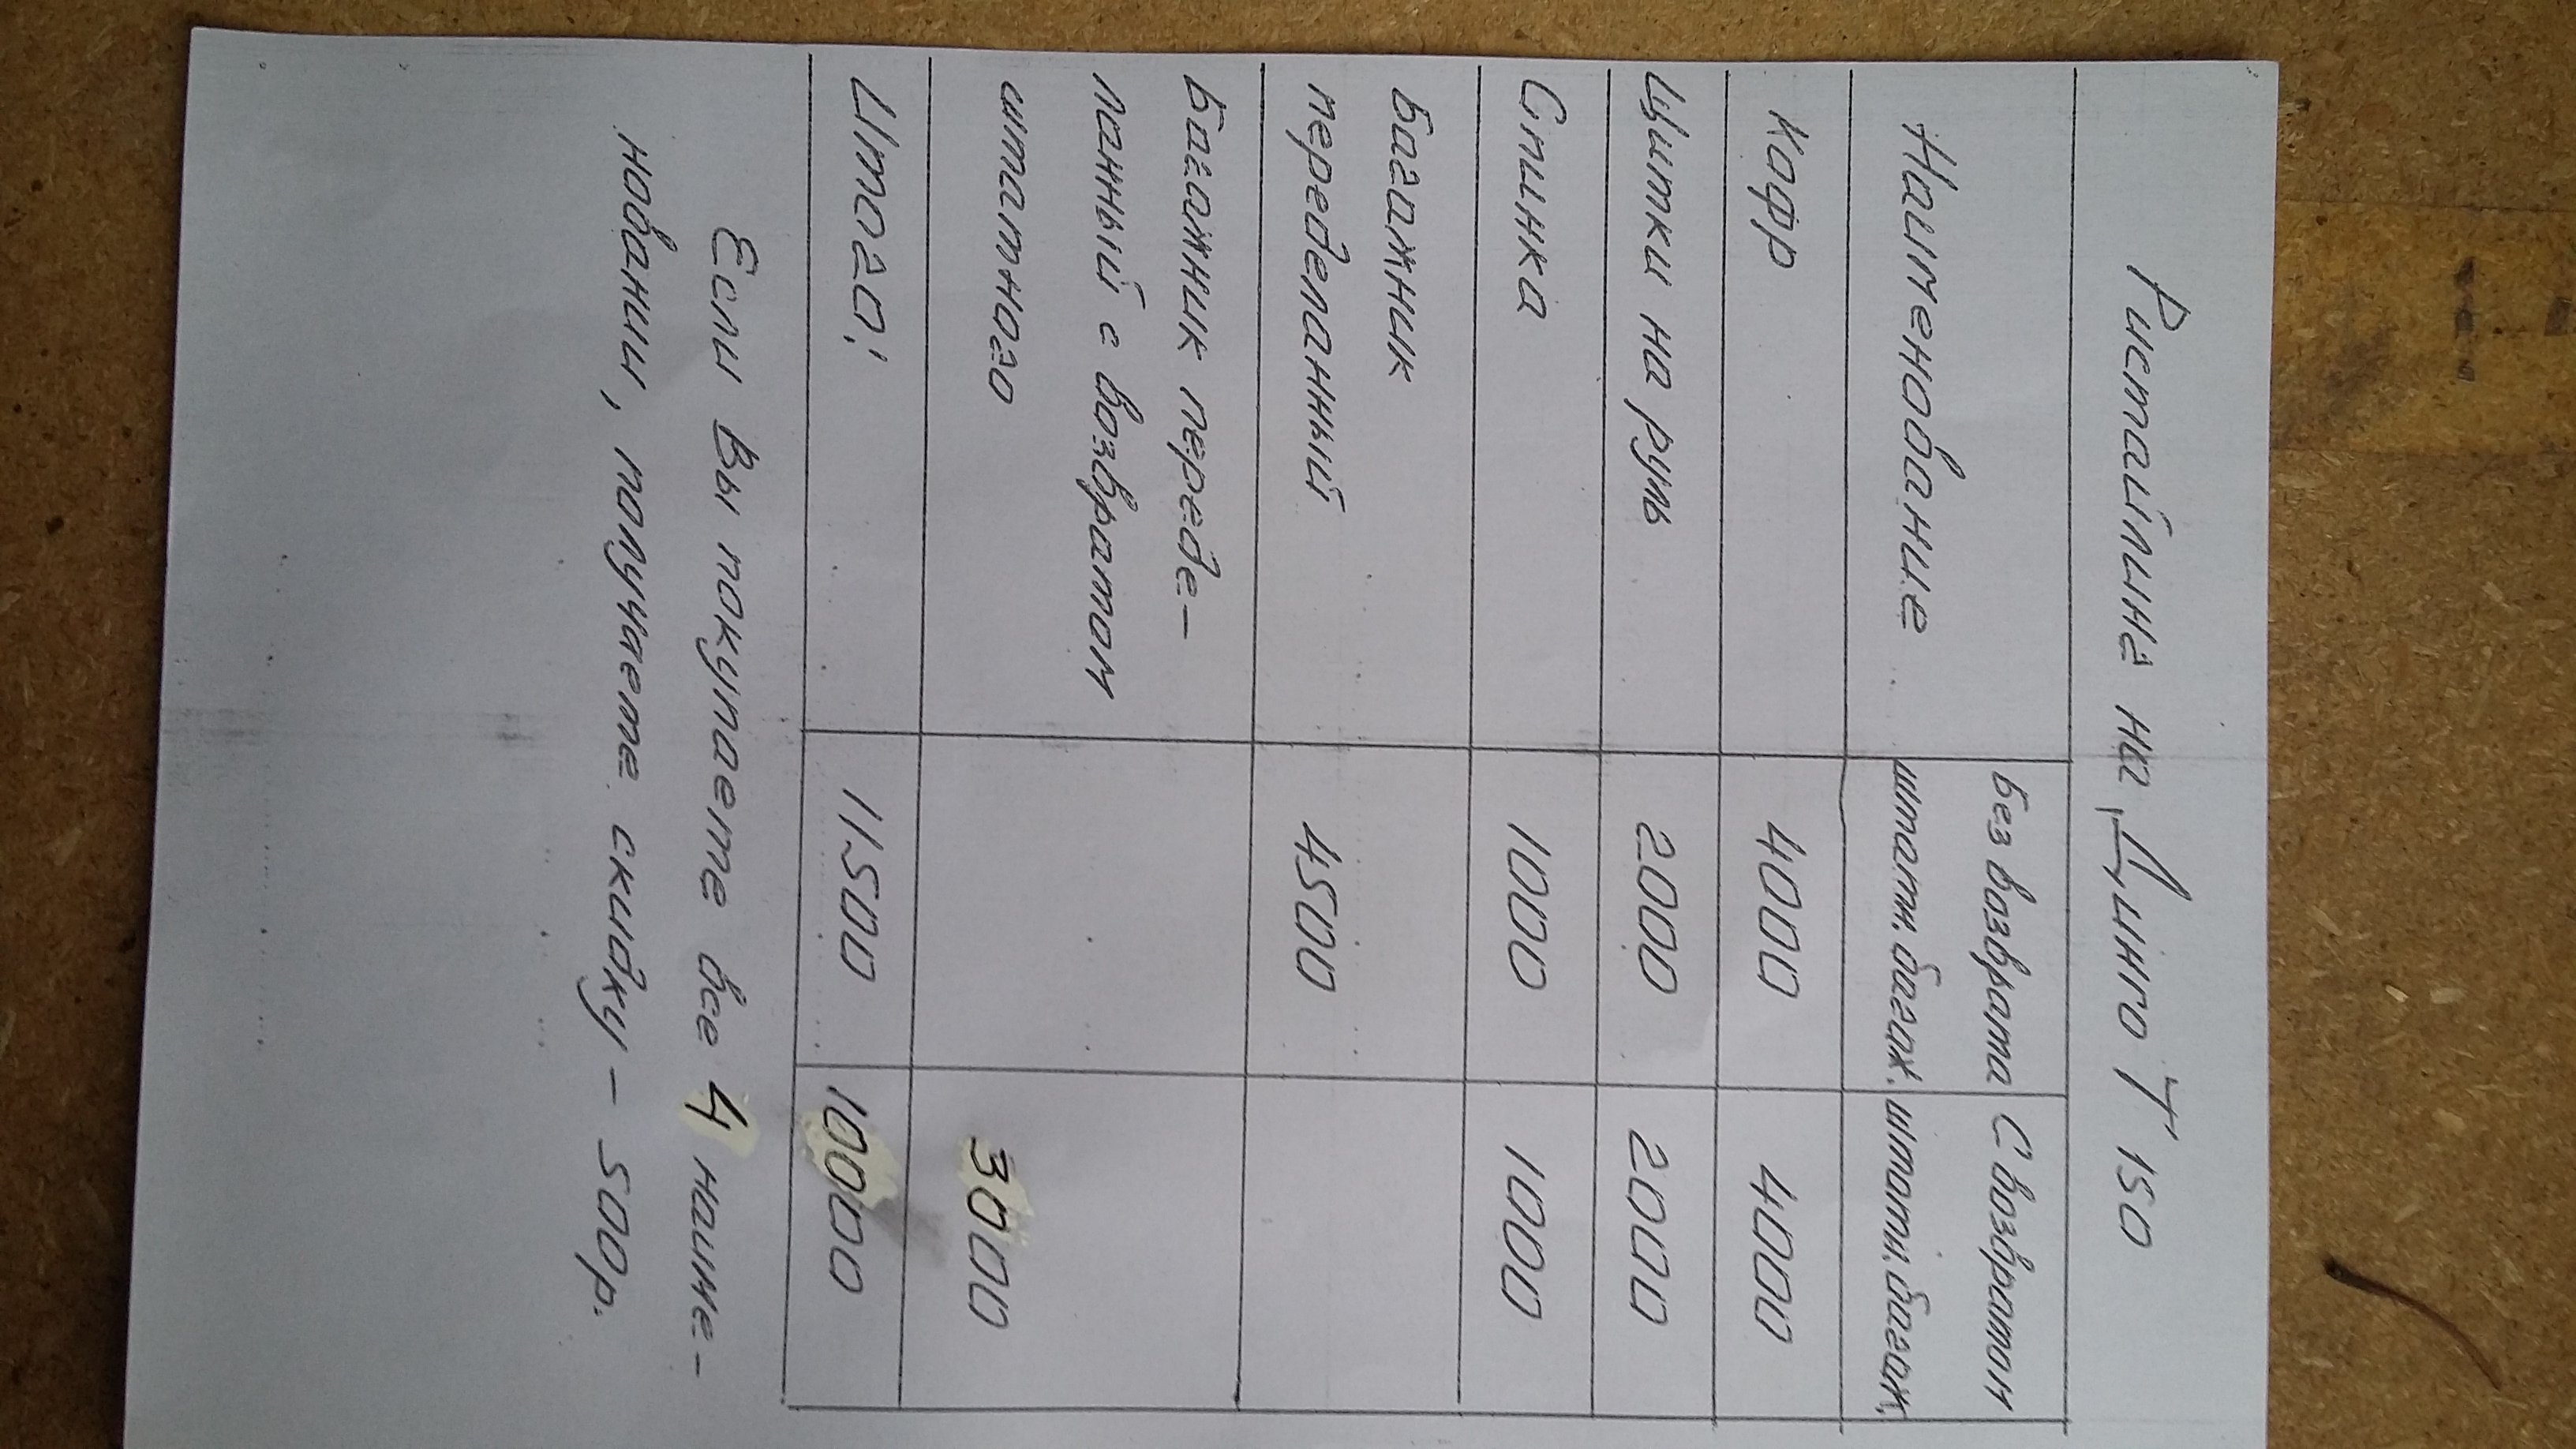 Ристайлинг на Динго Т 150
Наименование
Без возврата
штатн. багаж.
С возвратом
штатн. багаж.
Кофр 4000 4000
Щитки на руль 2000 2000
Спинка 1000 1000
Багажник
переделанный 4500
Багажник переде-
ланный с возвратом
штатного 3000
Итого: 11500 10000
Если Вы покупаете все 4 наиме-
нования, получаете скидку - 500р.